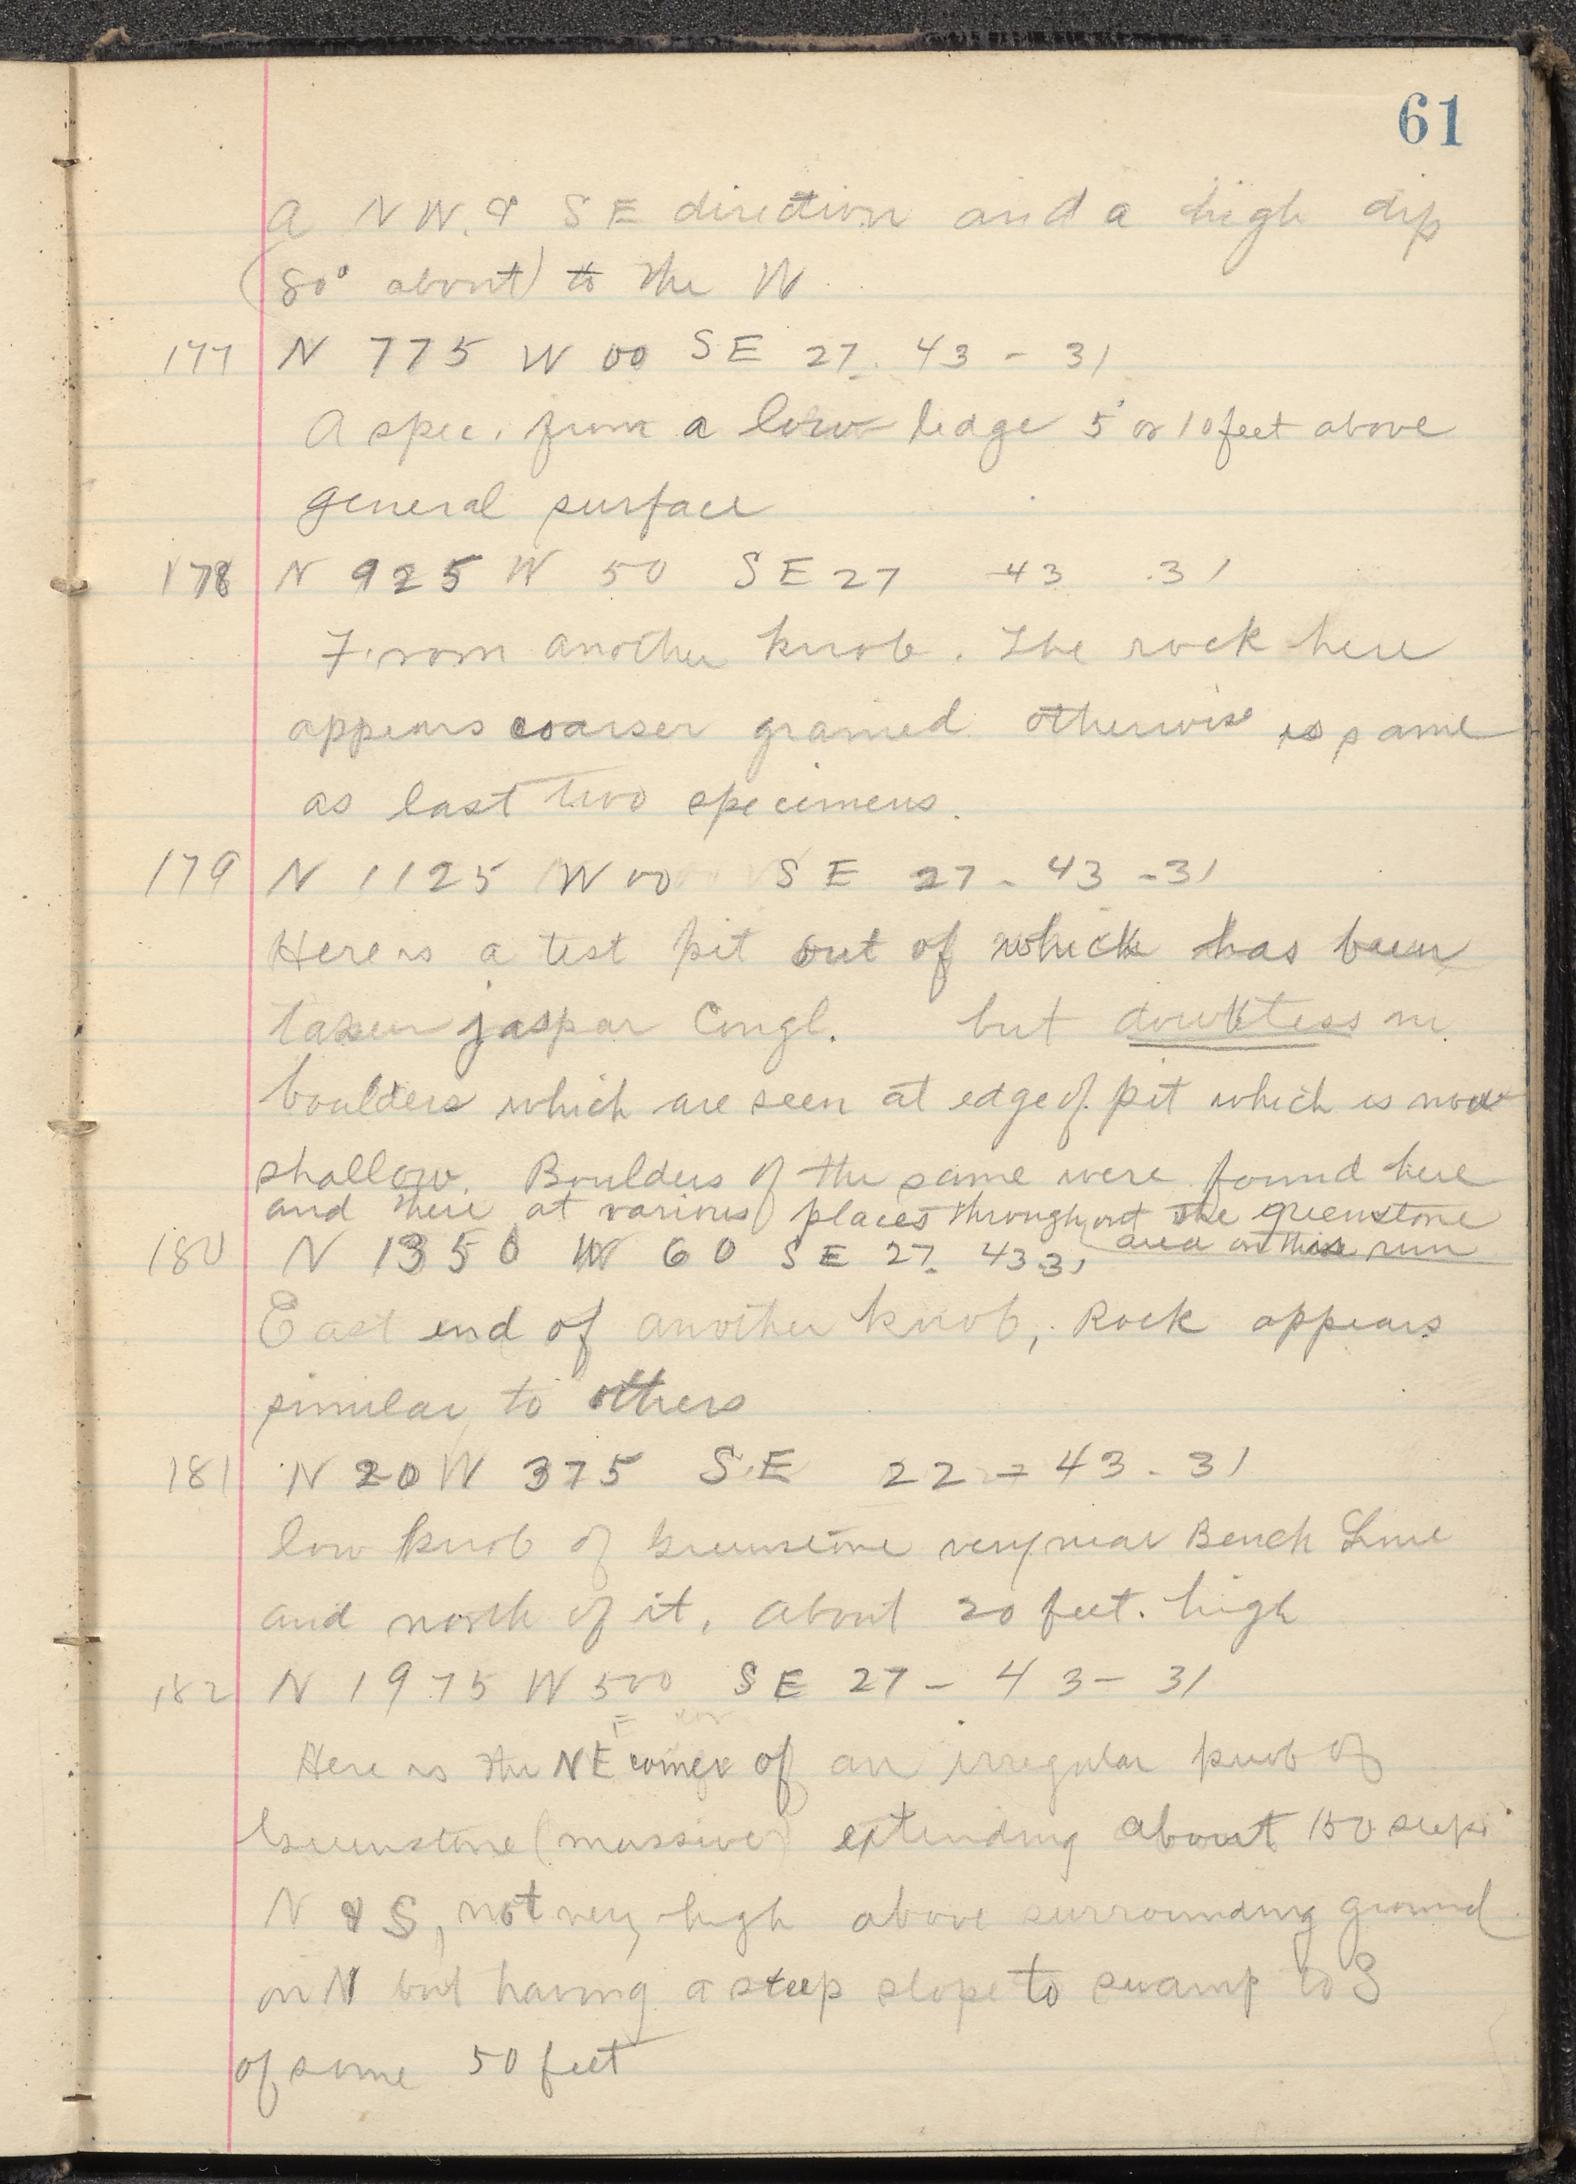 61
a N W. & S E direction and a high dip
(80° about) to the W
177 N 775 W 00 SE 27. 43 - 31
A spec. from a low ledge 5 or 10 feet above
general surface
178 N 925 W 50 SE 27 43 .31
From another knob. The rock here
appears coarser grained otherwise is same
as last two specimens.
179 N 1125 W 00 S E 27 - 43 - 31
Here is a test pit out of which has been
taken jaspar Congl. but doubtless in
boulders which are seen at edge of pit which is now
shallow. Boulders of the same were found here
and there at various places throughout the greenstone
area on this run
180 N 1350 W 60 SE 27. 43 31
East end of another knob, Rock appears
similar to others
181 N 20 W 375 S.E 22 - 43 - 31
low knob of Greenstone very near Bench Line
and north of it, about 20 feet. high
182 N 1975 W 500 SE 27 - 43 - 31
Here is the NE corner of an irregular knob of
Greenstone (massive) extending about 150 steps
N & S, not very high above surrounding ground
on N but having a steep slope to swamp to S
of some 50 feet